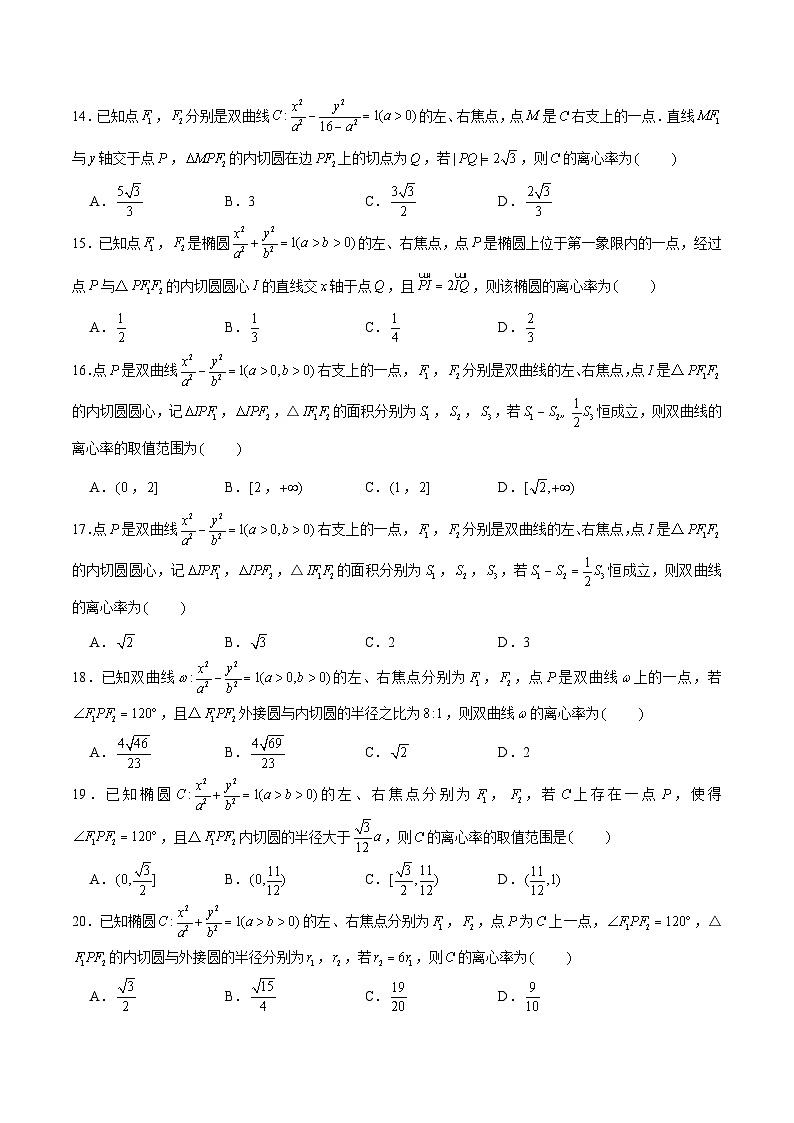 14．已知点F₁，F₂分别是双曲线C:x²/a²−y²/(16−a²)=1(a>0)的左、右焦点,点M是C右支上的一点.直线MF₁
与y轴交于点P，ΔMPF₂的内切圆在边PF₂上的切点为Q,若|PQ|=2√3,则C的离心率为(　　)
A．5√3/3　B．3　C．3√3/2　D．2√3/3
15．已知点F₁，F₂是椭圆x²/a²+y²/b²=1(a>b>0)的左、右焦点,点P是椭圆上位于第一象限内的一点,经过
点P与△PF₁F₂的内切圆圆心I的直线交x轴于点Q,且PI=2IQ,则该椭圆的离心率为(　　)
A．1/2　B．1/3　C．1/4　D．2/3
16.点P是双曲线x²/a²−y²/b²=1(a>0,b>0)右支上的一点，F₁，F₂分别是双曲线的左、右焦点,点I是△PF₁F₂
的内切圆圆心,记ΔIPF₁，ΔIPF₂,△IF₁F₂的面积分别为S₁，S₂，S₃,若S₁−S₂„ 1/2S₃恒成立,则双曲线的
离心率的取值范围为(　　)
A．(0，2]　B．[2，+∞)　C．(1，2]　D．[√2,+∞)
17.点P是双曲线x²/a²−y²/b²=1(a>0,b>0)右支上的一点，F₁，F₂分别是双曲线的左、右焦点,点I是△PF₁F₂
的内切圆圆心,记ΔIPF₁，ΔIPF₂,△IF₁F₂的面积分别为S₁，S₂，S₃,若S₁−S₂=1/2S₃恒成立,则双曲线
的离心率为(　　)
A．√2　B．√3　C．2　D．3
18．已知双曲线ω:x²/a²−y²/b²=1(a>0,b>0)的左、右焦点分别为F₁，F₂,点P是双曲线ω上的一点,若
∠F₁PF₂=120°,且△F₁PF₂外接圆与内切圆的半径之比为8:1,则双曲线ω的离心率为(　　)
A．4√46/23　B．4√69/23　C．√2　D．2
19．已知椭圆C:x²/a²+y²/b²=1(a>b>0)的左、右焦点分别为F₁，F₂,若C上存在一点P,使得
∠F₁PF₂=120°,且△F₁PF₂内切圆的半径大于√3/12a,则C的离心率的取值范围是(　　)
A．(0,√3/2]　B．(0,11/12)　C．[√3/2,11/12)　D．(11/12,1)
20.已知椭圆C:x²/a²+y²/b²=1(a>b>0)的左、右焦点分别为F₁，F₂,点P为C上一点,∠F₁PF₂=120°,△
F₁PF₂的内切圆与外接圆的半径分别为r₁,r₂,若r₂=6r₁,则C的离心率为(　　)
A．√3/2　B．√15/4　C．19/20　D．9/10